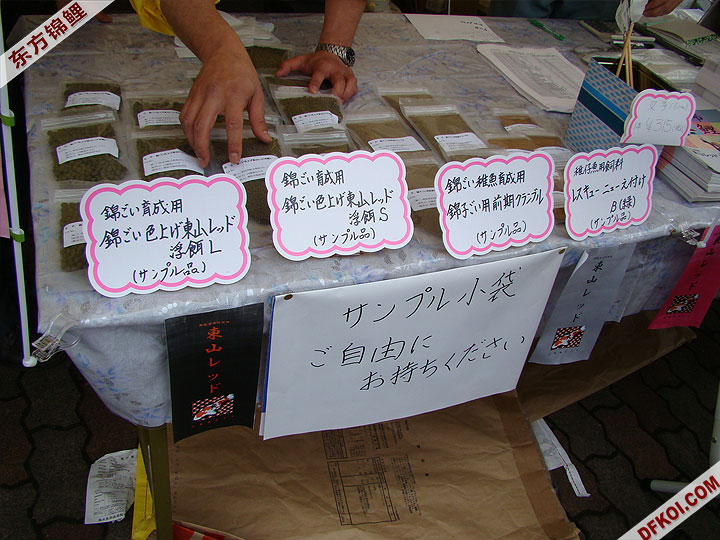 东方锦鲤
錦ごい育成用
錦ごい色上げ東山レッド
浮餌L
(サンプル品)
錦ごい育成用
錦ごい色上げ東山レッド
浮餌S
(サンプル品)
錦ごい稚魚育成用
錦ごい用前期クランブル
(サンプル品)
稚仔魚用飼料
レスキューニューえ付け
B(緑)
(サンプル品)
サンプル小袋
ご自由に
お持ちください
東山レッド
東山レッド
DFKOI.COM